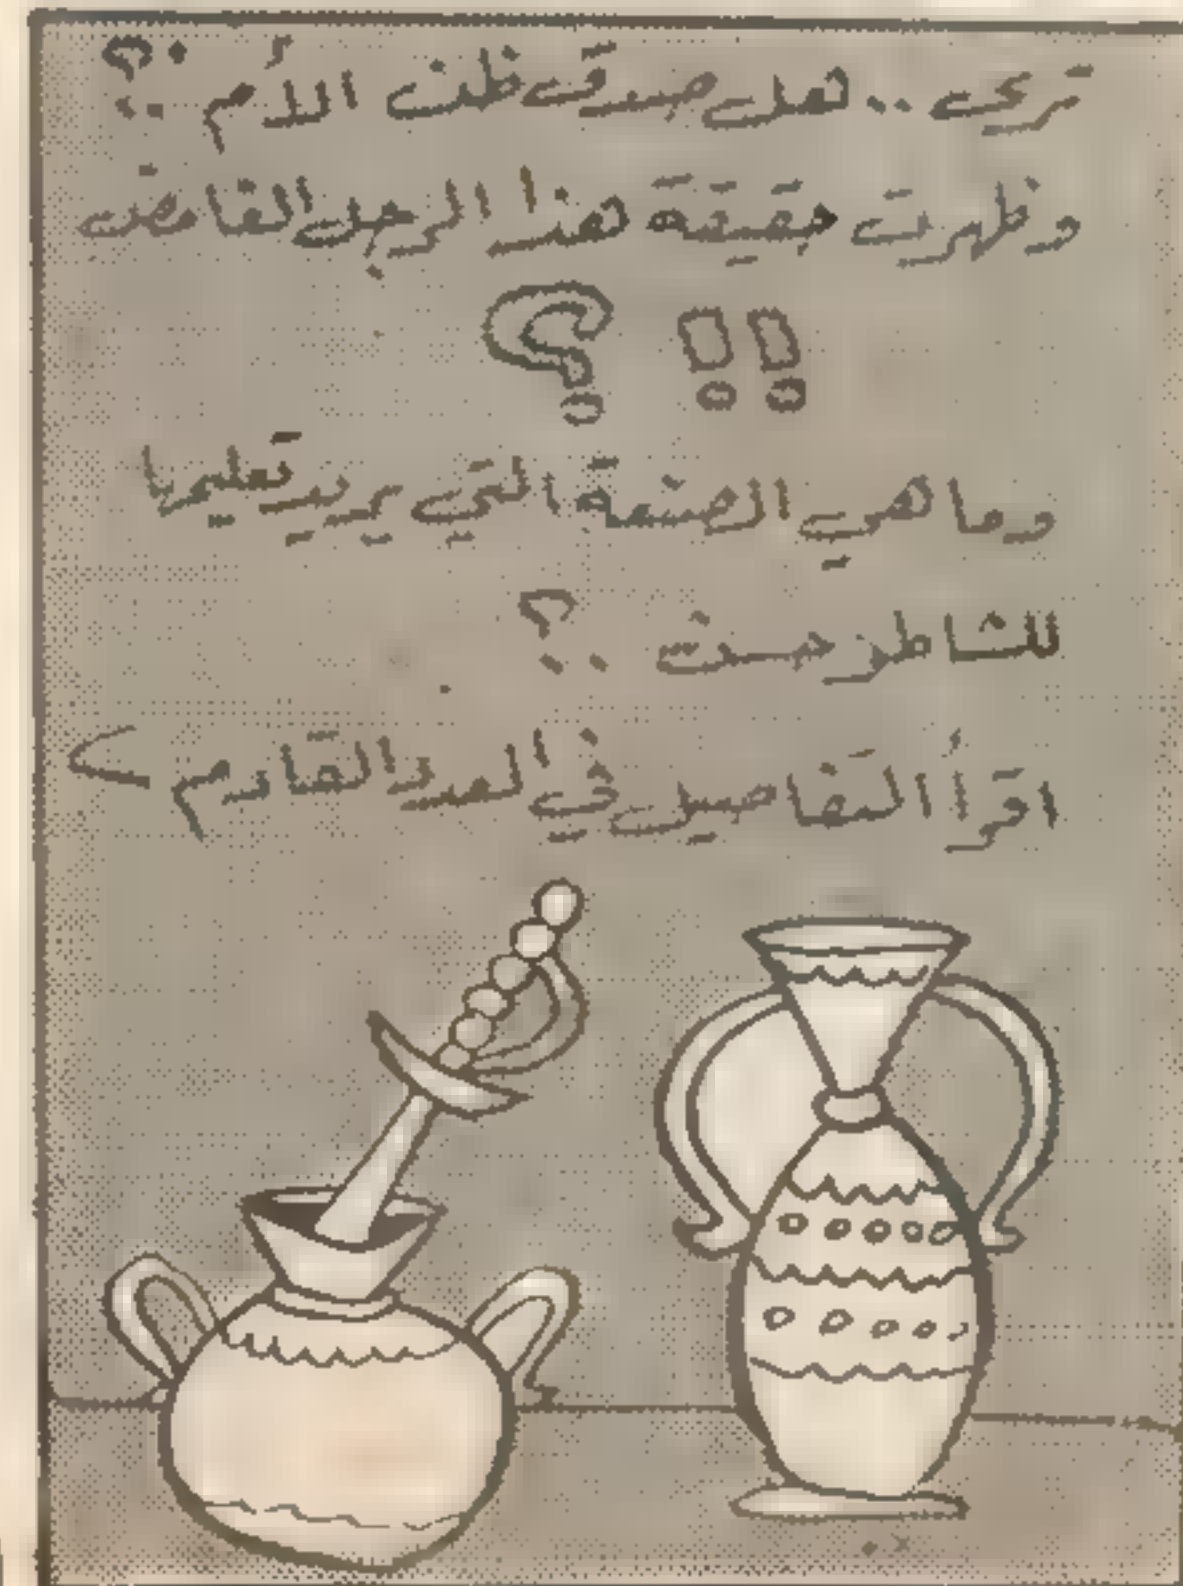 ترى .. هل صدق ظن الأم ..؟
وظهرت حقيقة هذا الرجل الغامض
!! ؟
وما هي الصنعة التي يريد تعليمها
للشاطر حسن ..؟
اقرأ التفاصيل في العدد القادم >